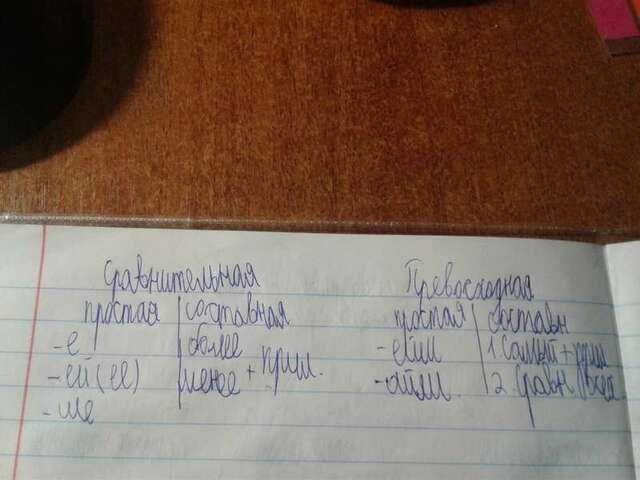 Сравнительная
простая составная
-е более
-ей(ее) менее + прил.
-ше
Превосходная
простая составн
-ейш 1. Самый + прил
-айш 2. Сравн всех